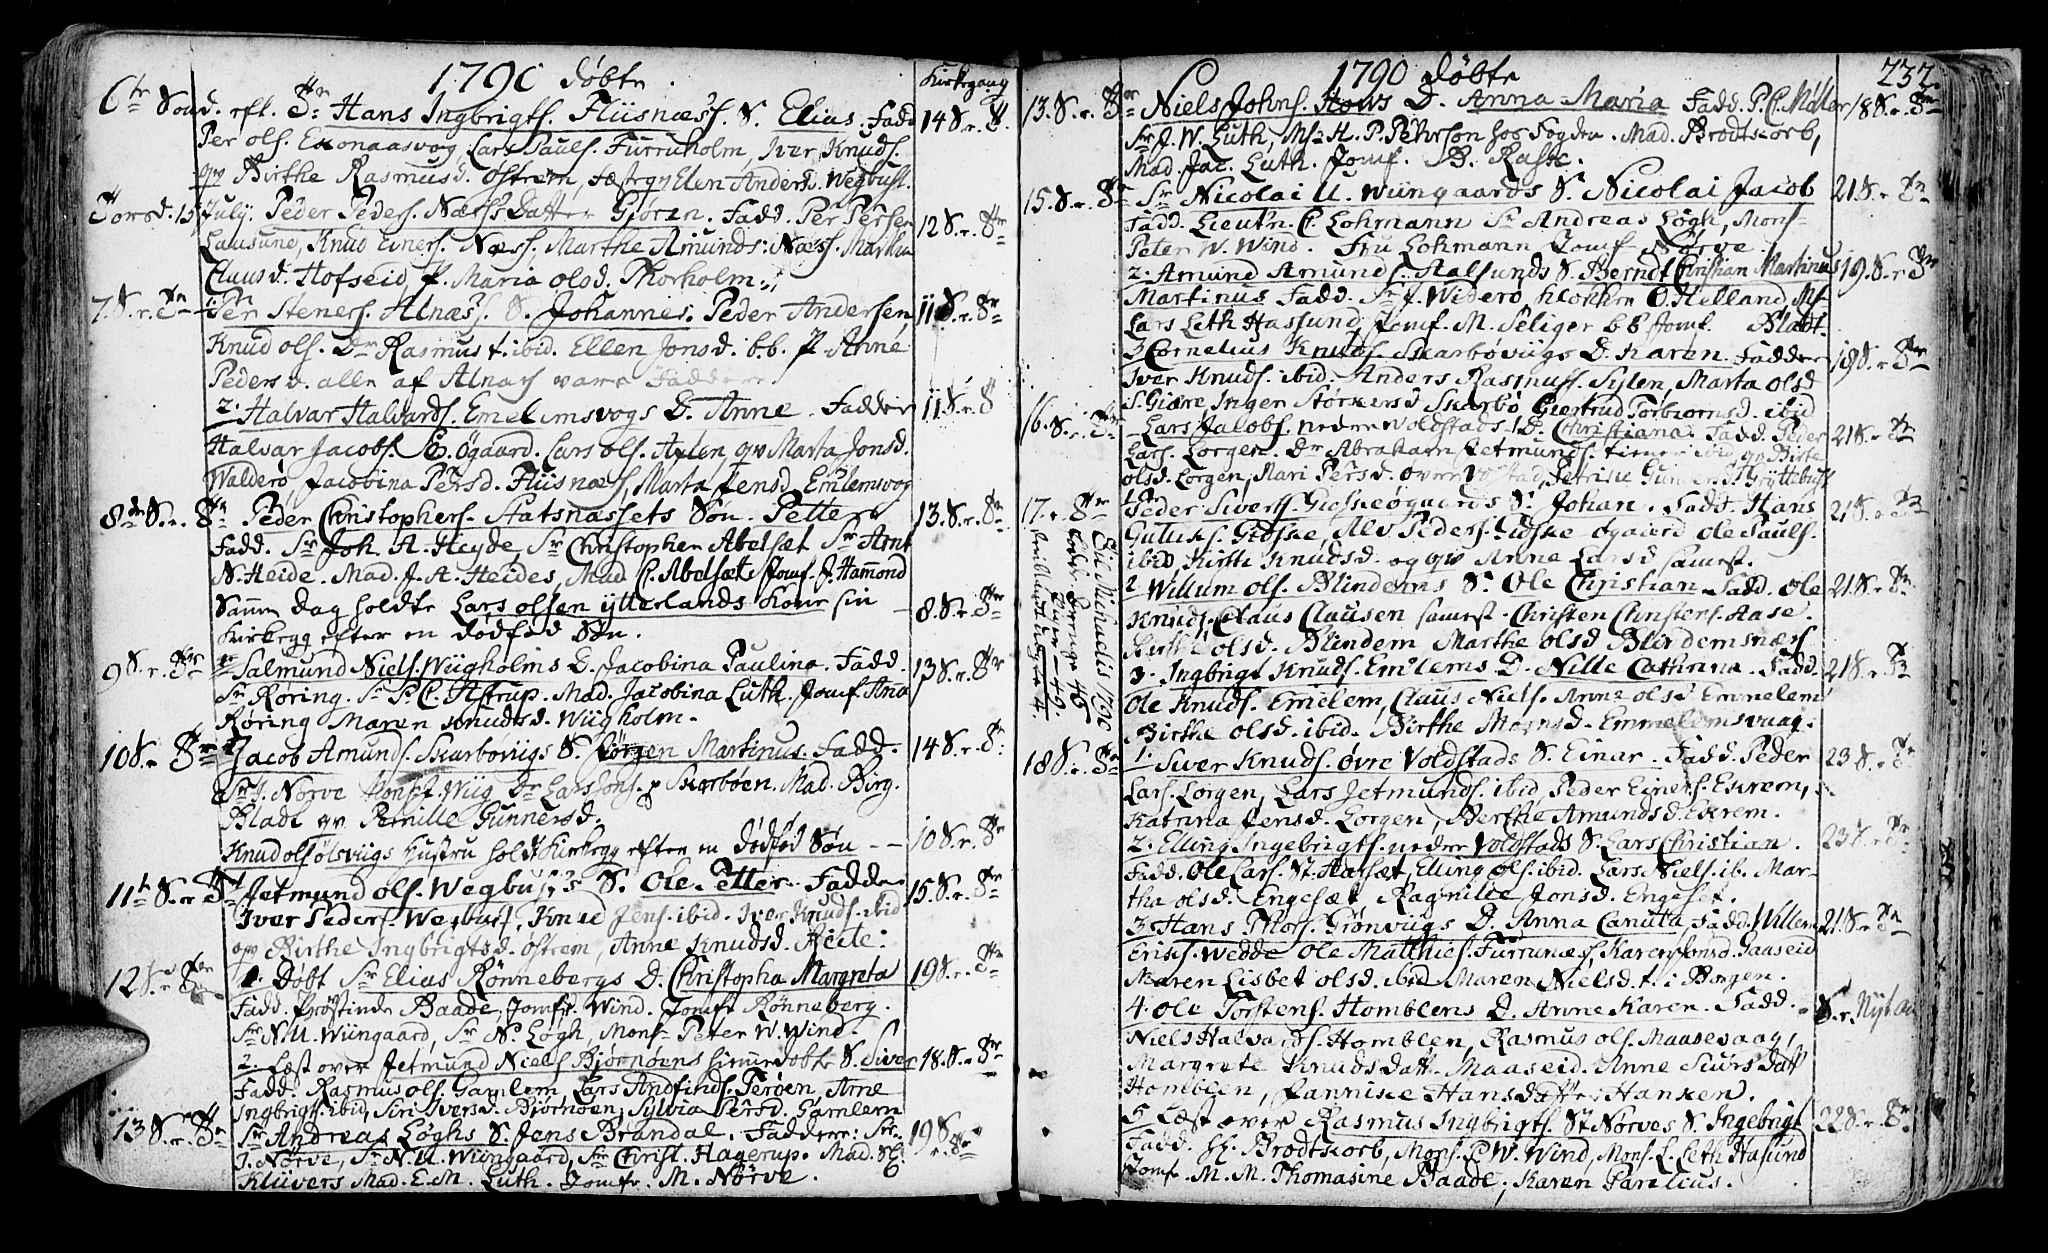 1790 døbte.
Kirkegang
6te Sønd. eft. Tr. Hans Ingbrigts. Fliisnæss. S. Elias. Fadd 14 S. r. Tr.
Per ols. Exonaasvog, Lars Pauls. Furruholm, Iver Knuds.
qv Birthe Rasmusd. østrem, Elen Andersd. Wegbust.
Torsd. 15 July. Peder Peders. Næss Datter Gjøren. Fadd. Per Persen 12 S. r. Tr
Lausune, Knud Einers. Næss. Marthe Amunds: Næss. Marthe
Clausd. Hofseid, P. Maria olsd. Thorholm.
7. S. r. Tr 1. Per Steners. Alnæss. S. Johannes. Peder Andersen 11 S. r. Tr
Knud ols. Dr Rasmus t. ibid. Ellen Jonsd. bb. P Anne
Pedersd. alle af Alnæs vare Faddere
2. Halvar Halvards. Emelemsvogs D. Anne. Fadder 11. S. r. T
Halvar Jacobs. E. øgaard. Lars ols. Hylen, qv Marta Jonsd.
Walderø, Jacobina Persd. Fliisnæss, Marta Jensd Emlemsvog
8de S. r. Tr Peder Christophers. Statsnæssets Søn. Petter 13. S. r. Tr
Fadd. Sr Joh. A. Heyde, Sr Christopher Abelsæt Sr Arnt
N. Heide. Mad. J. A. Heides, Mad C. Abelsæt Jomf. J. Hammond
Samme dag holdte Lars olsen ytterlands Kone sin 8. S. r. Tr
Kirkegg efter en dødfød Søn.
9 S. r. Tr Salmund Niels. Wiigholms D. Jacobina Paulina. Fadd. 13 S. r. Tr
Sr Røring. Sr P. C. Astrup. Mad. Jacobina Luth. Jomf. Ana
Røring Maren Knudsd. Wiigholm.
10 S. r. Tr Jacob Amunds. Skarbøviigs S. Jørgen Martinus. Fadd. 14 S. r. Tr:
Sr J. Nørve Wiig Dr Lars Jons. p Skorboen. Mad. Birg.
Bladt qv Pernille Gunnersd.
Knud ols ølsviigs Hustru holdt Kirkegg efter en dødfød Søn -- 10 S. r. Tr
11te S. r Tr Jetmund ols. Wegbust's S. Ole Petter. Fadder 15. S. r. Tr
Iver Peders. Wegbust, Knud Jens. ibid. Iver Knuds. ibid
qv Birthe Ingbrigtsd. østrem, Anne Knudsd. Reite:
12 S. r Tr 1. Døbt Sr Elias Rønnebergs D. Christopha Margreta 19 S. r. Tr
Fadd. Prostinde Baade, Jomfr. Wind. Jomfr Rønneberg.
Sr N. U. Wiingaard, Sr N. Løgh, Mons. Peter W. Wind.
2. Læst over Jetmund Niels. Bjørnøens S. Siver 18. S. r. Tr
Fadd. Rasmus ols. Gamlem Lars Andfinds. Torøen, Arne
Ingbrigts. ibid, Siri Iversd. Bjørnøen, Sylvia Persd. Gamlem
13 S. r. Tr Sr Andreas Løghs S. Jens Brandal. Faddere: Sr 19 S. r. Tr
J. Nørve, Sr N. U. Wiingaard, Sr Christ. Hagerup. Mad.
Klüvers Mad. E. M. Luth. Jomfr. M. Nørve.
1790 døbte
232.
13. S. r. Tr Niels Johns. Hows D. Anna Maria Fadd. P. C. Møller 18 S. r. Tr
Sr J. W. Luth, Ms. H. P. Pehrson hos Fogden. Mad. Brodtkorb,
Mad. Jac. Luth. Jomf. B. Rask.
15. S. r. Tr Sr Nicolai U. Wiingaards S. Nicolai Jacob 21 S. r. Tr
Fadd. Lieutn. C. Lohmann Sr Andreas Løgh, Mons.
Peter W. Wind. Fru Lohmann Jomf Nørve.
2. Amund Amunds. Aalsunds S. Berndt Christian Martinus 19. S. r Tr
Martinus Fadd. Sr J. Widerø, Klokker O. Helland, Ms.
Lars Leth Hassund, Jomf. M. Seliger bb Jomf. Bladt.
3 Cornelius Knuds. Skarbøviigs D. Karen. Faddere 19 S. r Tr
Iver Knuds. ibid. Anders Rasmuss. Sylen, Marta olsd
S. Giære, Inger Størkersd Skarbø Giertrud Torbiornsd. ibid
16. S. r. Tr Lars Jacobs. nedre Voldstads D. Christiana. Fadd. Peder 21 S. r. Tr
Lars. Lorgen. Dr Abraham Jetmunds. tiener ibid qv Birte
olsd. Lorgen, Mari Persd. øvre Voldstad, Petrine Gunnersd. Gryttebust
17. r. Tr 1. Peder Siverts. Giøskeøgaards S. Johan. Fadd. Hans 21 S. r Tr
Gutuks. Giøske, Alv Peders. Giøske øgaard Ole Pauls.
ibid, Kirsti Knudsd. og qv Anne Larsd samest.
2 Willum ols. Blindems S. Ole Christian. Fadd. Ole 21 S. r. Tr
Knuds. Claus Clausen samest. Christen Christens. Aase
Kirsti olsd. Blindem Marthe olsd Blindemsnæss
3. Ingbrigt Knuds. Emblems D. Nille Cathrina. Fadd. 21 S. r. Tr
Ole Knuds. Emelem, Claus Niels. Anne olsd Emmelem
Birthe olsd. ibid. Birthe Monsd. Emmelemsvaag.
Til Michaelis 1790
18 S. r. Tr 1. Siver Knuds. øvre Voldstads S. Einar. Fadd. Peder 23 S. r Tr
Lars. Lorgen, Lars Jetmunds. ibid Peder Einers. Exrem,
Katrina Jensd. Lorgen, Berthe Amundsd. Exrem.
2. Elling Ingebrigts. nedre Voldstads S. Lars Christian. 23 S. r. Tr
Fadd. Ole Lars. St. Hassæt, Elling ols. ibid. Lars Niels. ib. Mar-
tha olsd. Engesæt, Ragnilde Jonsd. Engeset.
3. Hans Thors. Grønviigs D. Anna Canuta. Fadd. Willem 21. S. r. Tr
Erichs. Wedde Ole Matthies. Furrunæss. Karen Gaaseid
Maren Lisbet olsd. ibid Maren Nielsd. t. i Borgen.
4. Ole Torstens. Homblens D. Anne Karen. Fadd. S. r. Nyt aar
Niels Halvards. Homblen, Rasmus ols. Maasevaag,
Margrete Knudsdatt. Maaseid. Anne Siursdatt
Homblen, Pernniske Hansdatter Hansken.
5. Læst over Rasmus Ingbrigts. St. Nørves S. Ingebrigt 22 S. r. Tr
Fadd. H. Brodtkorb, Mons. P. W. Wind, Mons. L. Leth Hasund
Jomf. M. M. Thomasine Baade, Karen Parelius.